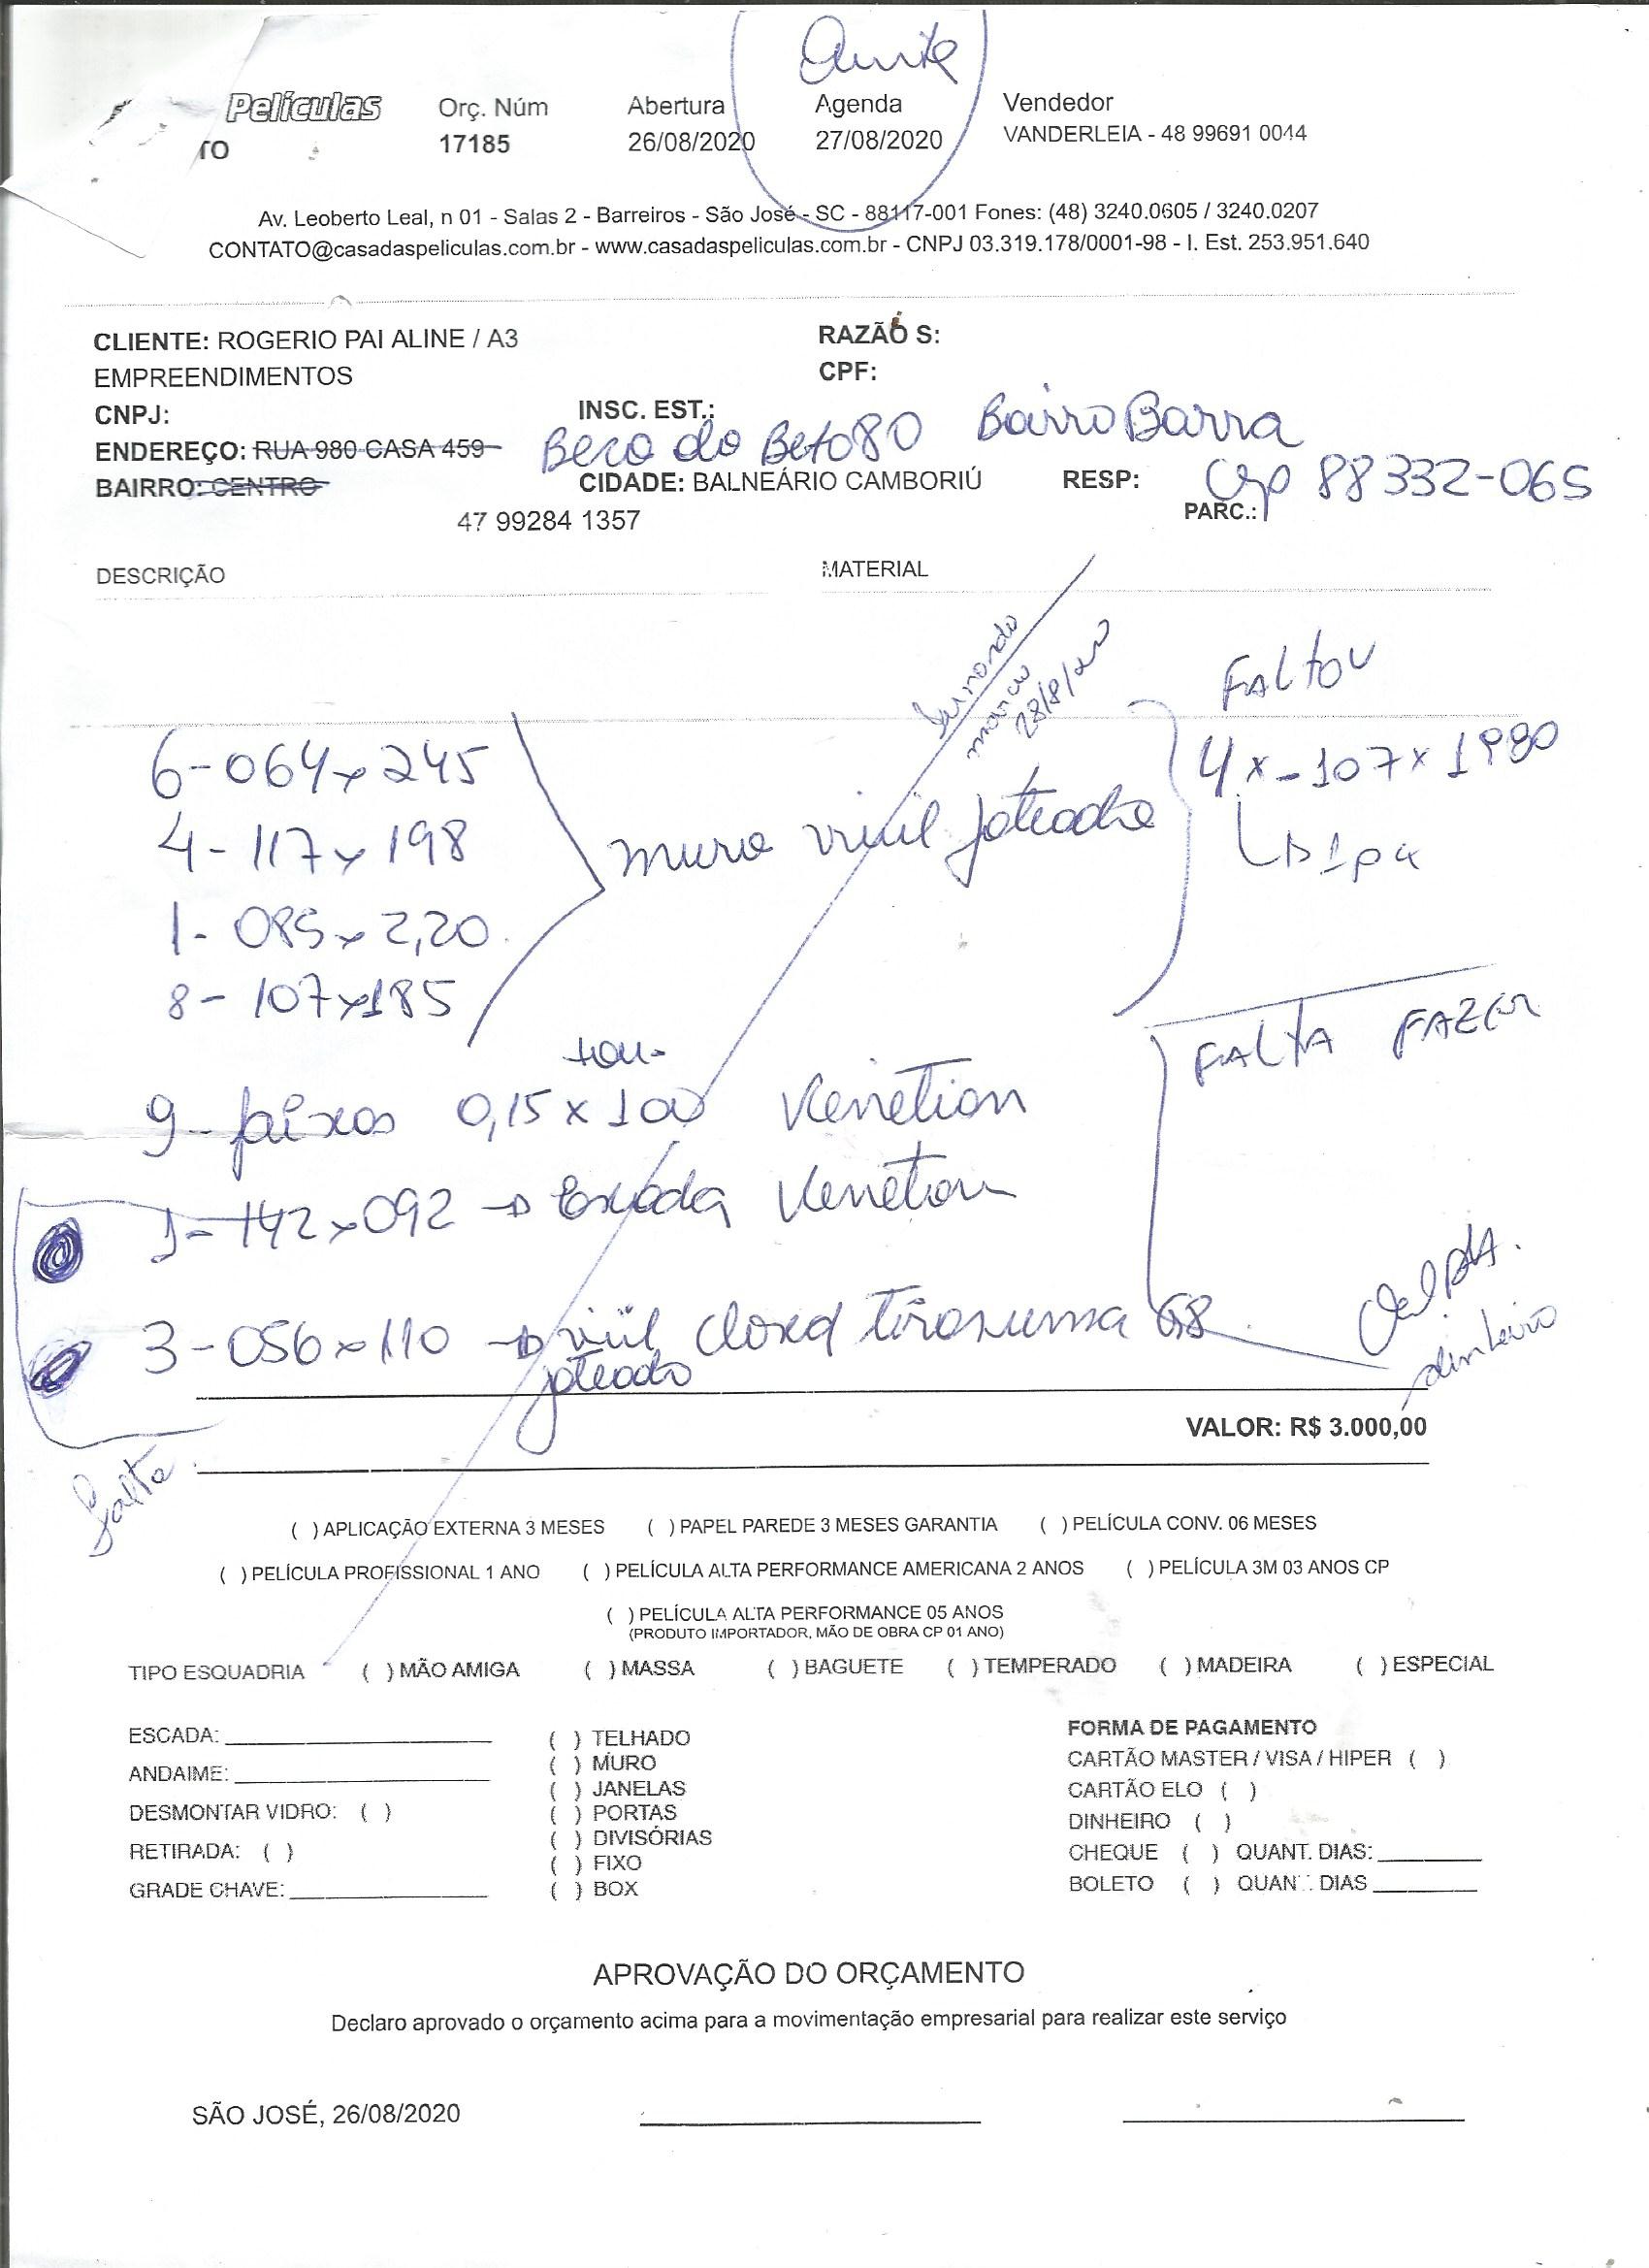 Películas Orç. Núm Abertura Agenda Vendedor
TO 17185 26/08/2020 27/08/2020 VANDERLEIA - 48 99691 0044
Av. Leoberto Leal, n 01 - Salas 2 - Barreiros - São José - SC - 88117-001 Fones: (48) 3240.0605 / 3240.0207
CONTATO@casadaspeliculas.com.br - www.casadaspeliculas.com.br - CNPJ 03.319.178/0001-98 - I. Est. 253.951.640
CLIENTE: ROGERIO PAI ALINE / A3 RAZÃO S:
EMPREENDIMENTOS CPF:
CNPJ: INSC. EST.:
ENDEREÇO: RUA 980 CASA 459 Beco do Beto 80 Bairro Barra
BAIRRO: CENTRO CIDADE: BALNEÁRIO CAMBORIÚ RESP: Cep 88332-065
47 99284 1357 PARC.:
DESCRIÇÃO MATERIAL
28/8/2020
FALTOU
6-064x245 4x-107x1980
4-117x198 muro vinil jateado 1pa
1-085x2,20
8-107x185
FALTA FAZER
9-faixas 0,15x100 Venetian
1-142x092 → Escada Venetian
3-056x110 → vinil jateado
dinheiro
VALOR: R$ 3.000,00
falta
( ) APLICAÇÃO EXTERNA 3 MESES ( ) PAPEL PAREDE 3 MESES GARANTIA ( ) PELÍCULA CONV. 06 MESES
( ) PELÍCULA PROFISSIONAL 1 ANO ( ) PELÍCULA ALTA PERFORMANCE AMERICANA 2 ANOS ( ) PELÍCULA 3M 03 ANOS CP
( ) PELÍCULA ALTA PERFORMANCE 05 ANOS
(PRODUTO IMPORTADOR, MÃO DE OBRA CP 01 ANO)
TIPO ESQUADRIA ( ) MÃO AMIGA ( ) MASSA ( ) BAGUETE ( ) TEMPERADO ( ) MADEIRA ( ) ESPECIAL
ESCADA:
ANDAIME:
DESMONTAR VIDRO: ( )
RETIRADA: ( )
GRADE CHAVE:
( ) TELHADO
( ) MURO
( ) JANELAS
( ) PORTAS
( ) DIVISÓRIAS
( ) FIXO
( ) BOX
FORMA DE PAGAMENTO
CARTÃO MASTER / VISA / HIPER ( )
CARTÃO ELO ( )
DINHEIRO ( )
CHEQUE ( ) QUANT. DIAS:
BOLETO ( ) QUANT. DIAS
APROVAÇÃO DO ORÇAMENTO
Declaro aprovado o orçamento acima para a movimentação empresarial para realizar este serviço
SÃO JOSÉ, 26/08/2020